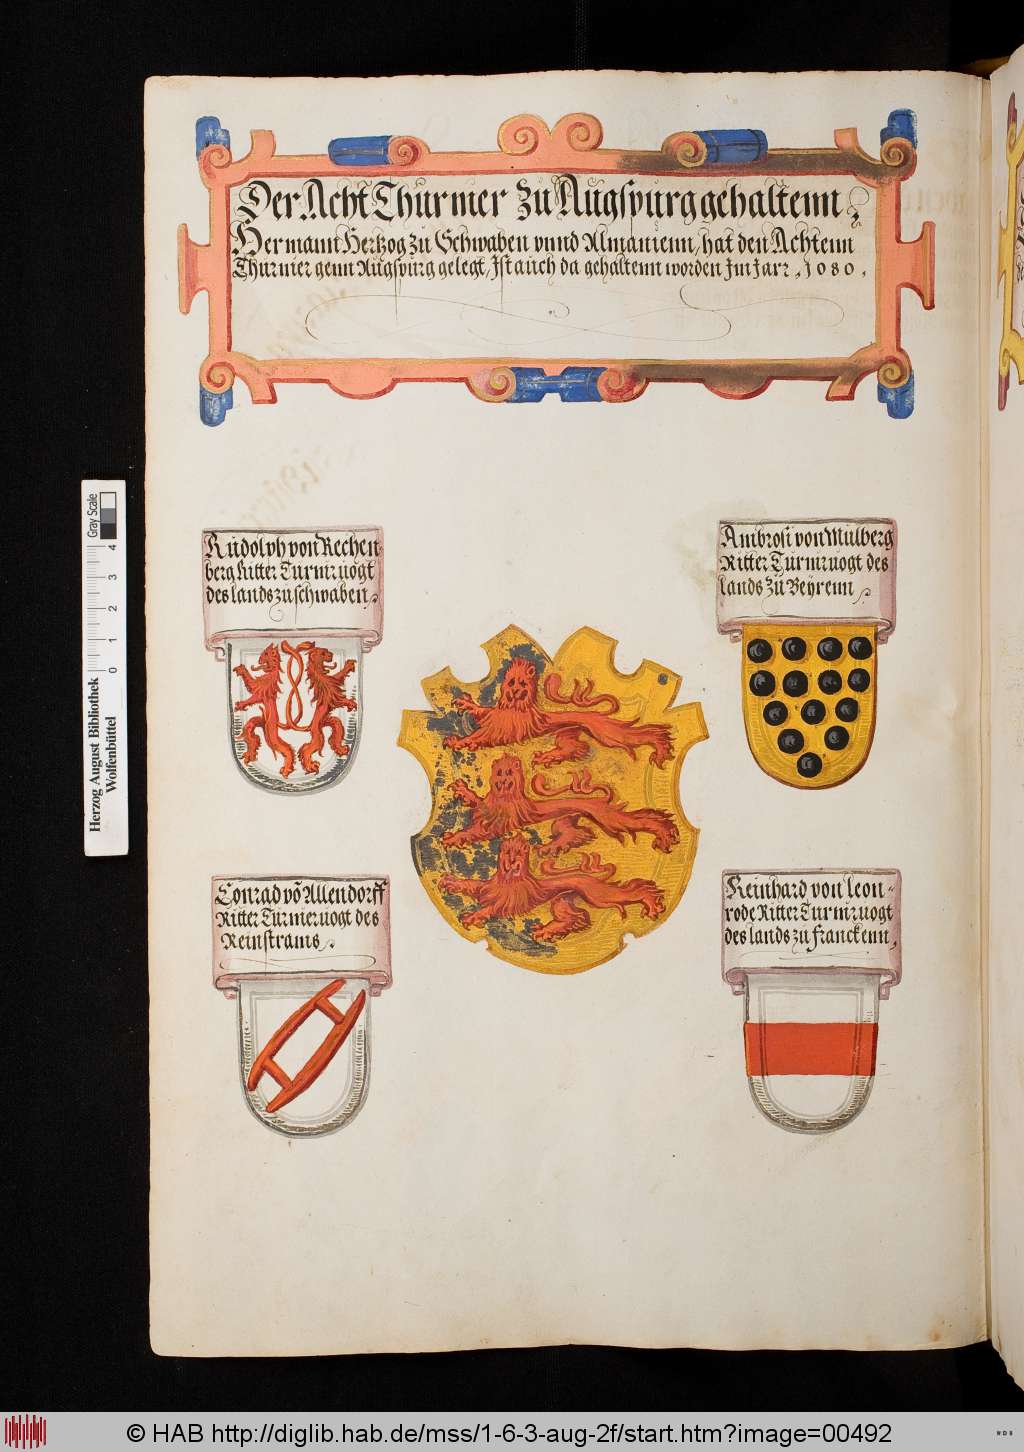 Der Acht Thurnier zu Augspurg gehaltenn,
Hermann Hertzog zu Schwaben vnnd Almanienn, hat den Achtenn
Thurnier genn Augspurg gelegt, Ist auch da gehaltenn worden Im Jarr, 1080,
Rudolph von Rechen
berg Ritter Turnirvogt
des lands zu schwaben,
Ambrosi von Mulberg
Ritter Turnirvogt des
lands zu Beyrenn,
Conrad vō Allendorff
Ritter Turniervogt des
Reinstrams,
Reinhard von Leon-
rode Ritter Turnirvogt
des lands zu Franckenn,
Herzog August Bibliothek
Wolfenbüttel
0 1 2 3 4
Gray Scale
© HAB http://diglib.hab.de/mss/1-6-3-aug-2f/start.htm?image=00492